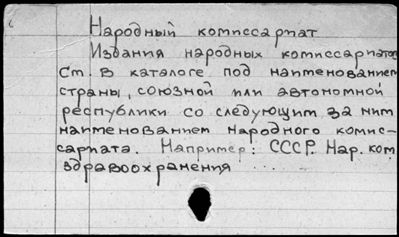 Народный комиссариат
Издания народных комиссариатов
См. в каталоге под наименованием
страны, союзной или автономной
республики со следующим за ним
наименованием народного комис-
сариата. Например: СССР. Нар. ком.
здравоохранения